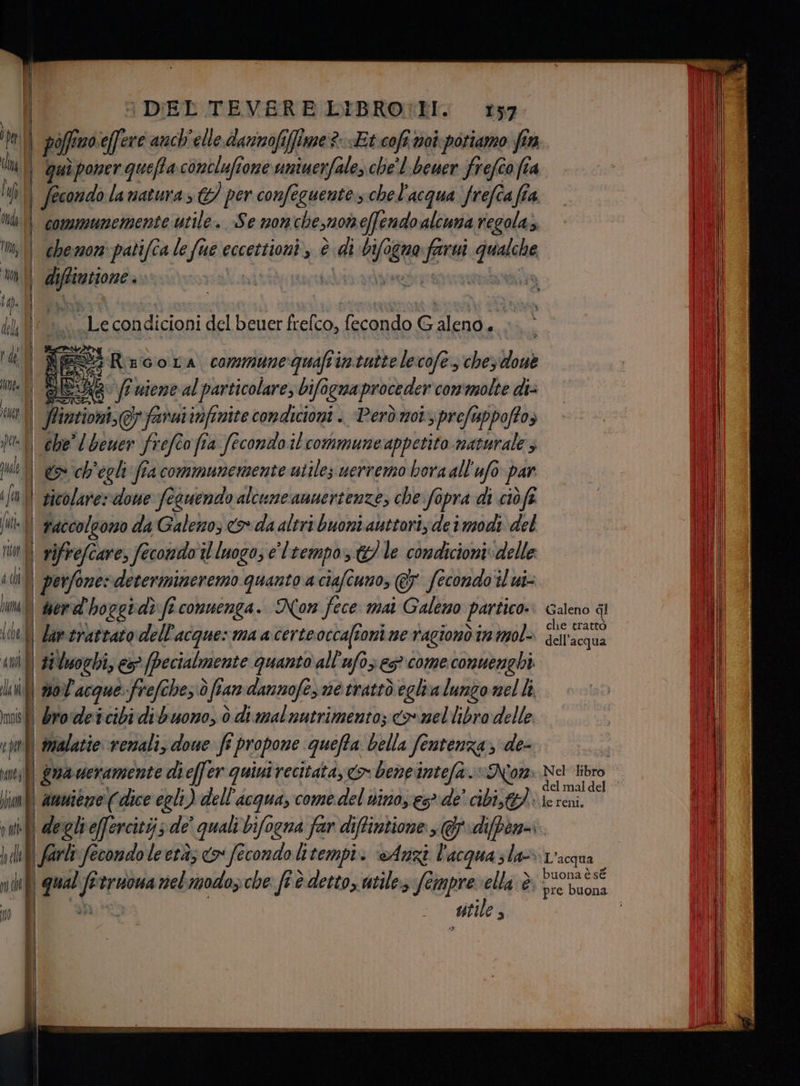 DEL TEVERE LIBRO II. 157
poſſino eſſere anch'elle dannoſiſſime? Et coſi noi potiamo fin
quì poner queſta concluſione uniuerſale, che'l beuer freſco ſia
ſecondo la natura, & per conſeguente, che l'acqua freſca ſia
communemente utile. Se non che, non eſſendo alcuna regola,
che non patiſca le ſue eccettioni, è di biſogno farui qualche
diſtintione.
Le condicioni del beuer freſco, ſecondo Galeno.
REGOLA commune quaſi in tutte le coſe, che, doue
ſi uiene al particolare, biſogna proceder con molte di-
ſtintioni, & farui infinite condicioni. Però noi, preſuppoſto,
che'l beuer freſco ſia ſecondo il commune appetito naturale,
& ch'egli ſia communemente utile; uerremo hora all'uſo par
ticolare: doue ſeguendo alcune auuertenze, che ſopra di ciò ſi
raccolgono da Galeno, & da altri buoni auttori, de i modi del
rifreſcare, ſecondo il luogo, e'l tempo, & le condicioni delle
perſone: determineremo quanto a ciaſcuno, & ſecondo il ui-
uer d'hoggi dì ſi conuenga. Non fece mai Galeno partico-
lar trattato dell'acque: ma a certe occaſioni ne ragionò in mol-
ti luoghi, & ſpecialmente quanto all'uſo, & come conuenghi-
no l'acque freſche, ò ſian dannoſe, ne trattò egli a lungo nel li
bro de i cibi di buono, ò di mal nutrimento; & nel libro delle
malatie renali, doue ſi propone queſta bella ſentenza, de-
gna ueramente di eſſer quiui recitata, & bene inteſa. Non
auuiene (dice egli) dell'acqua, come del uino, & de' cibi, &
degli eſſercitij; de' quali biſogna far diſtintione, & diſpen-
ſarli ſecondo le età, & ſecondo li tempi. Anzi l'acqua, la-
qual ſi truoua nel modo, che ſi è detto, utile, ſempre ella è
utile,
Galeno ꝗl
che trattò
dell'acqua
Nel libro
del mal del
le reni.
L'acqua
buona è sẽ
pre buona